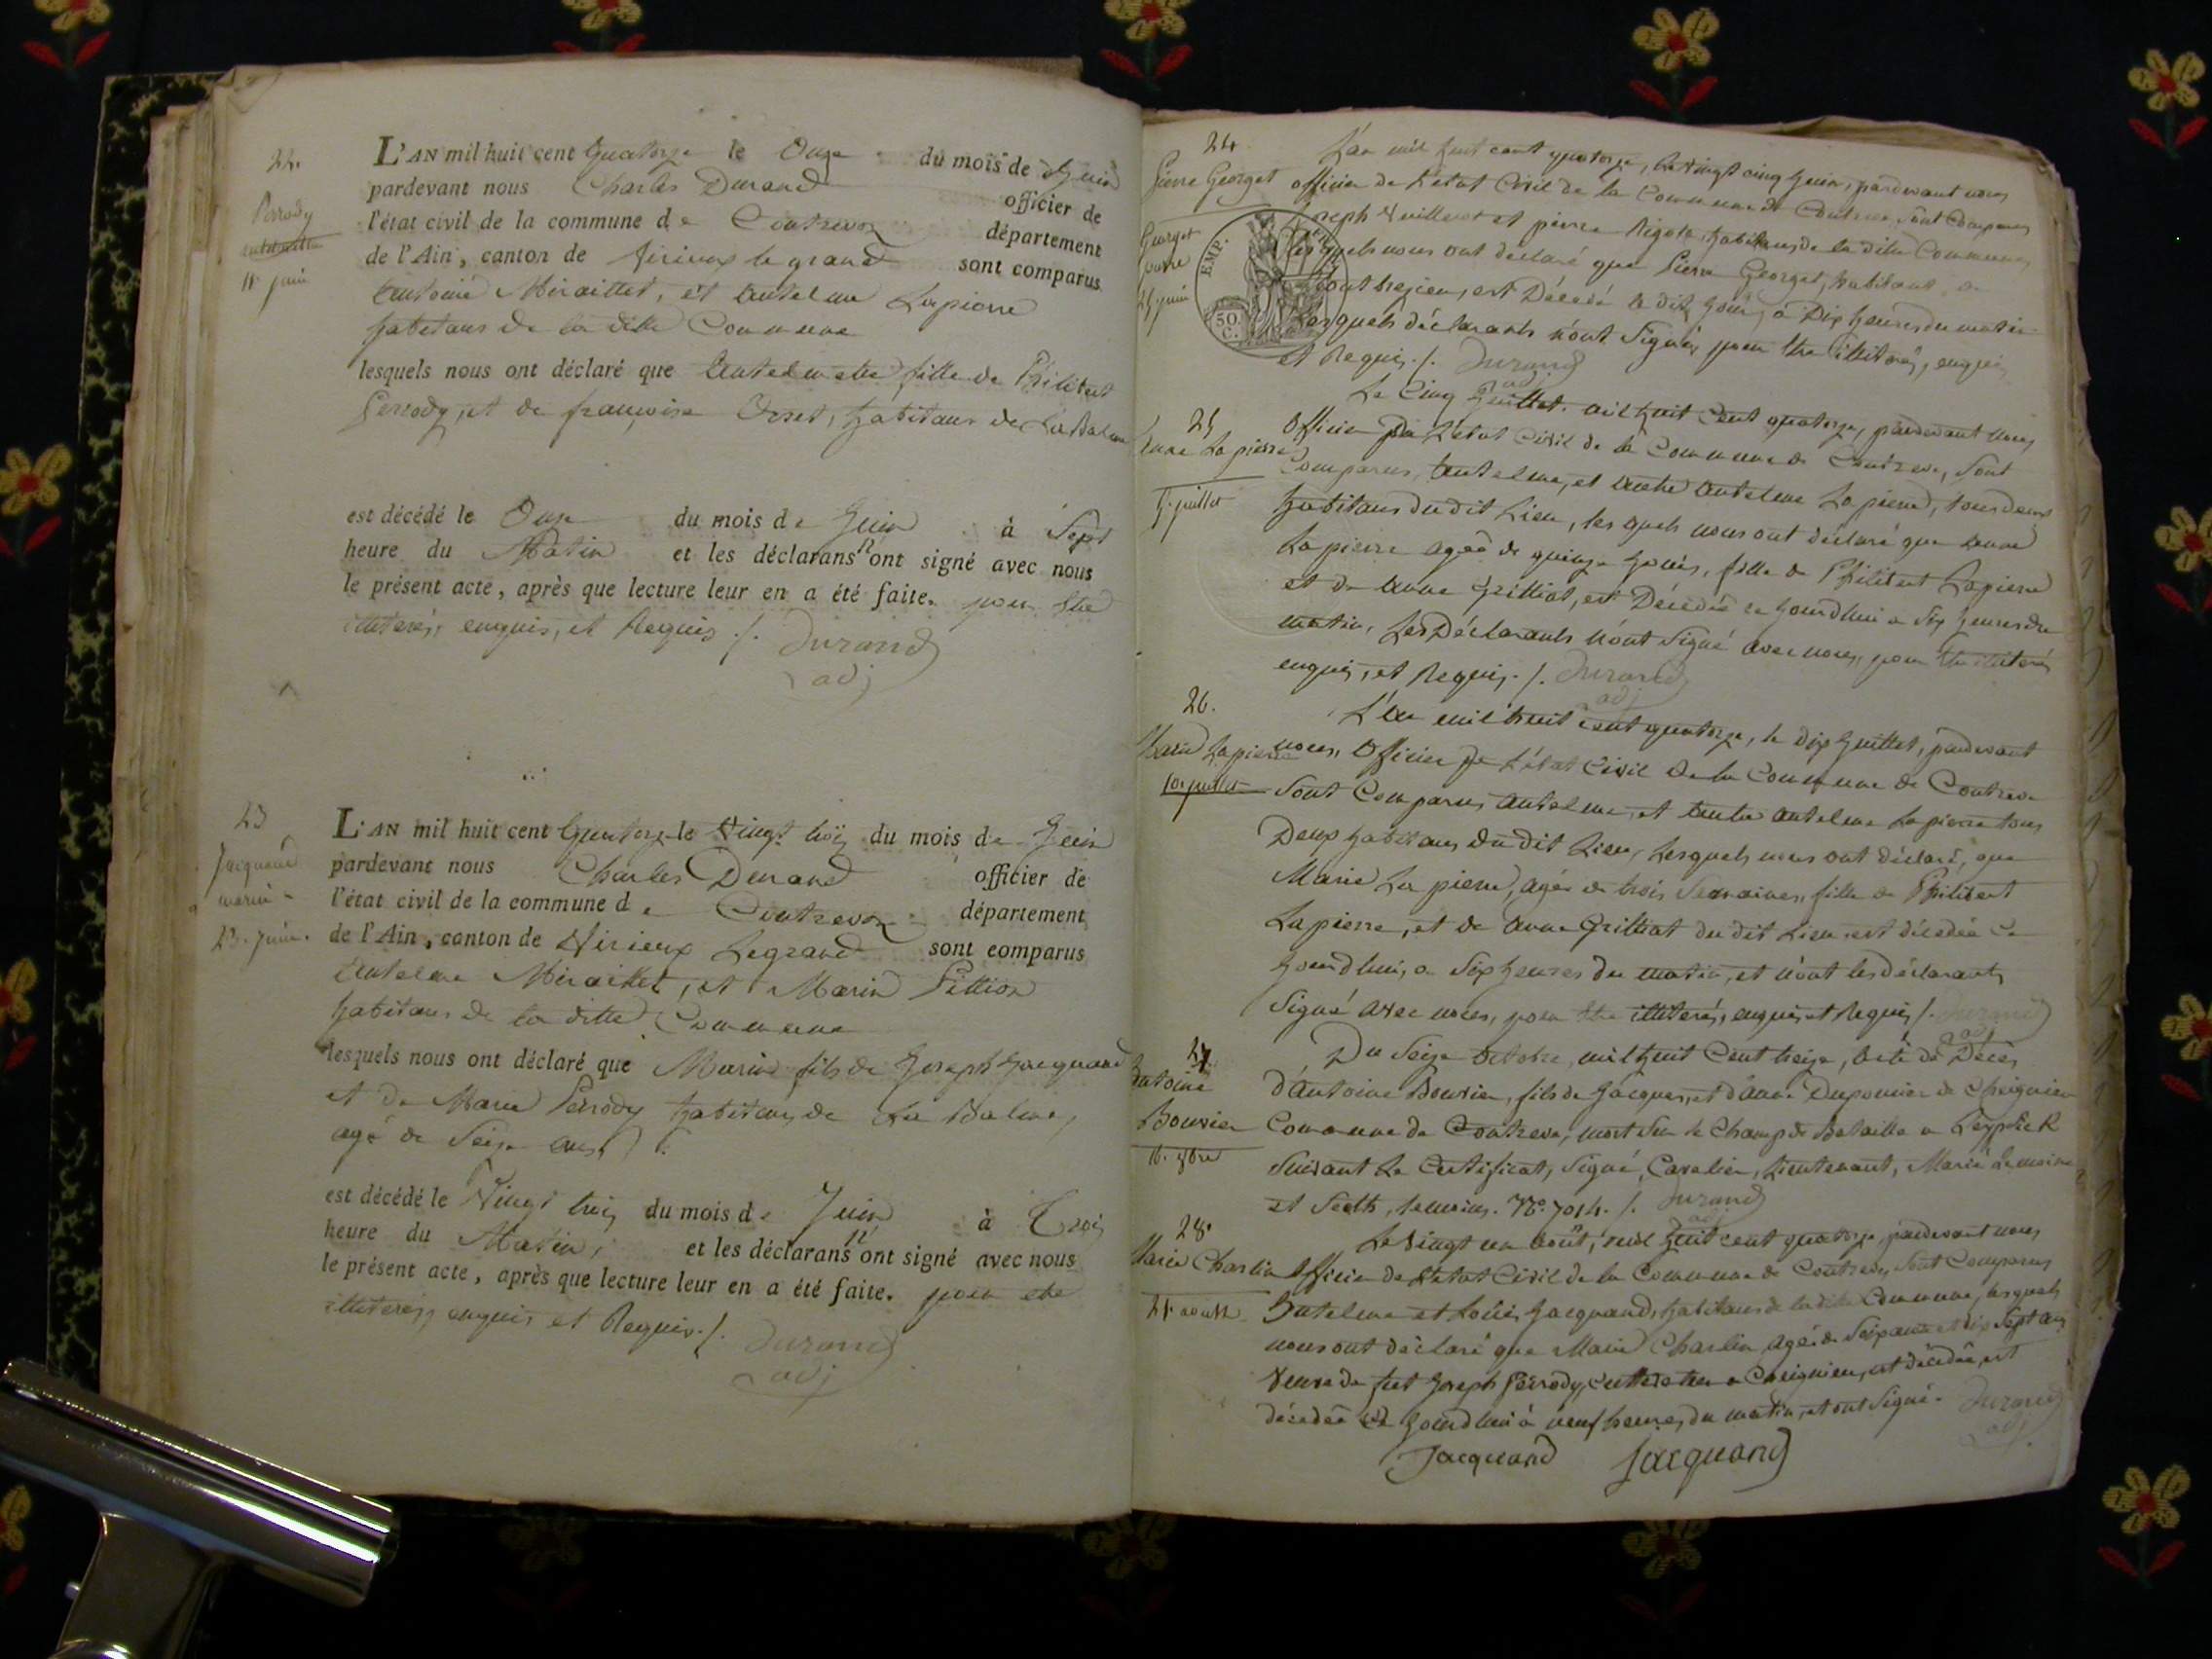 22.
Perrody
antelmette
11 juin
L'AN mil huit cent Quatorze le Onze du mois de Guin
pardevant nous Charles Durand officier de
l'état civil de la commune de Contrevoz département
de l'Ain, canton de Virieux le grand sont comparus
Antoine Miraillet, et Antelme Lapierre
habitans de la ditte Commune
lesquels nous ont déclaré que Antelmette fille de Philibert
Perrody, et de françoise habitans de La Balme
est décédé le Onze du mois de Guin à Sept
heure du Matin et les déclarans n'ont signé avec nous
le présent acte, après que lecture leur en a été faite. pour être
illiterés, enquis, et Requis ./. Durand
adj
23
Jacquand
marin
23. juin.
L'AN mil huit cent Quatorze le Vingt trois du mois de Guin
pardevant nous Charles Durand officier de
l'état civil de la commune de Contrevoz département
de l'Ain, canton de Virieux Legrand sont comparus
Antelme Miraillet, et Marin Pittion
habitans de la ditte Commune
lesquels nous ont déclaré que Marin fils de Joseph Jacquand
et de Marie Perrody habitans de La Balme,
agé de Seize ans
est décédé le Vingt trois du mois de Juin à Trois
heure du Matin, et les déclarans n'ont signé avec nous
le présent acte, après que lecture leur en a été faite. pour etre
illiterés, enquis et Requis ./. Durand
adj
24
Pierre Georget
Georget
pierre
25 juin
EMP.
50
C.
L'an mil huit cent quatorze, le vingt cinq Guin, pardevant nous
officier de L'état Civil de la Commune de Contrevoz, Sont Comparus
Joseph Vuillerot et pierre Rigot, habitans de la ditte Commune
lesquels nous ont déclaré que Pierre Georget, habitant a
Montbrezieu, est Décédé le dit jour, a Dix heures du matin
Lesquels déclarants n'ont Signés pour être illiterés, enquis
et Requis ./. Durand
adj
25
Anne Lapierre
5. juillet
Le Cinq Guillet. mil huit Cent quatorze, pardevant nous
Officier De L'état Civil de la Commune de Contrevoz, Sont
Comparus, Antelme, et autre antelme Lapierre, tous deux
habitans du dit Lieu, les quels nous ont déclaré que anne
Lapierre agée de quinze jours, fille de Philibert Lapierre
et de anne Grilliat, est Décédée ce jourd'hui a Six heures du
matin, Les Déclarants n'ont Signé avec nous, pour être illiterés
enquis, et Requis ./. Durand
adj
26.
Marie Lapierre
10 juillet
L'an mil huit cent quatorze, le dix Guillet, pardevant
nous, Officier de L'état Civil de la Commune de Contrevoz
Sont Comparus antelme, et autre antelme Lapierre tous
Deux habitans du dit Lieu, Lesquels nous ont déclaré, que
Marie Lapierre, agée de trois Semaines, fille de Philibert
Lapierre, et de anne Grilliat du dit Lieu est décédée ce
jourd'hui, a Six heures du matin, et n'ont les déclarants
Signé avec nous, pour être illiterés, enquis et Requis ./. Durand
adj
27.
Antoine
Bouvier
16. 8bre
Du Seize octobre, mil huit Cent treize, acte de Décès
d'Antoine Bouvier, fils de Jacques, et d'anne Duponnier de Cheignieu
Commune de Contrevoz, mort Sur le Champ de Bataille a Leypsick
Suivant Le Certificat, Signé, Cavalier, Lieutenant, Marié Lemoine
et temoins. N°. 7014. ./. Durand
adj
28.
Marie Charlin
21 aoust
Le Vingt un aoùt, mil huit cent quatorze, pardevant nous
Officier de L'état Civil de la Commune de Contrevoz, Sont Comparus
Antelme et Louis Jacquand, habitans de la ditte Commune, lesquels
nous ont déclaré que Marie Charlin agée de Soixante et dix Sept ans
Veuve de feu Joseph Perrody, a Cheignieu, est décédée, est
décedée ce jourd'hui à neuf heures du matin, et ont Signé. Durand
adj
Jacquand Jacquand